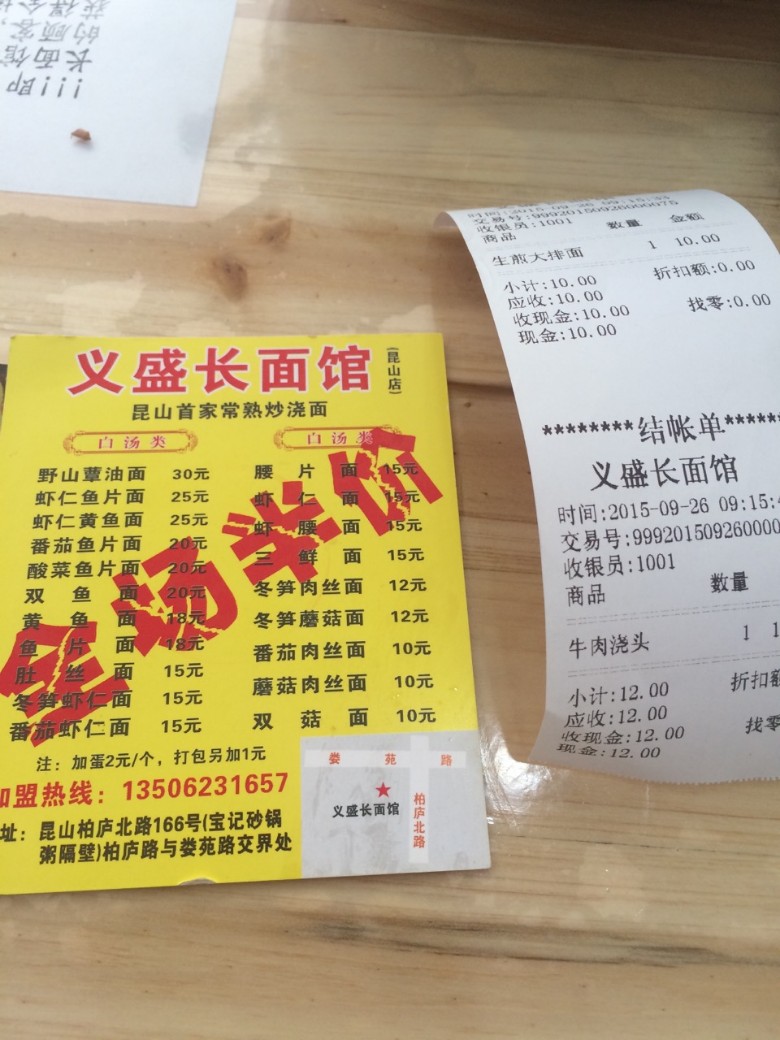 的顾客
长面馆
!!!即
义盛长面馆
(昆山店)
昆山首家常熟炒浇面
白汤类
野山蕈油面 30元
虾仁鱼片面 25元
虾仁黄鱼面 25元
番茄鱼片面 20元
酸菜鱼片面 20元
双鱼面 20元
黄鱼面 18元
鱼片面 18元
肚丝面 15元
冬笋虾仁面 15元
番茄虾仁面 15元
白汤类
腰片面 15元
虾仁面 15元
虾腰面 15元
三鲜面 15元
冬笋肉丝面 12元
冬笋蘑菇面 12元
番茄肉丝面 10元
蘑菇肉丝面 10元
双菇面 10元
全场半价
注：加蛋2元/个，打包另加1元
加盟热线：13506231657
址：昆山柏庐北路166号(宝记砂锅
粥隔壁)柏庐路与娄苑路交界处
娄苑路
义盛长面馆
柏庐北路
时间:2015-09-26 09:15:33
交易号:9992015092600000075
收银员:1001
商品 数量 金额
生煎大排面 1 10.00
小计:10.00 折扣额:0.00
应收:10.00
收现金:10.00 找零:0.00
现金:10.00
********结帐单*****
义盛长面馆
时间:2015-09-26 09:15:4
交易号:999201509260000
收银员:1001
商品 数量
牛肉浇头 1 1
小计:12.00 折扣额
应收:12.00
收现金:12.00 找零
现金:12.00